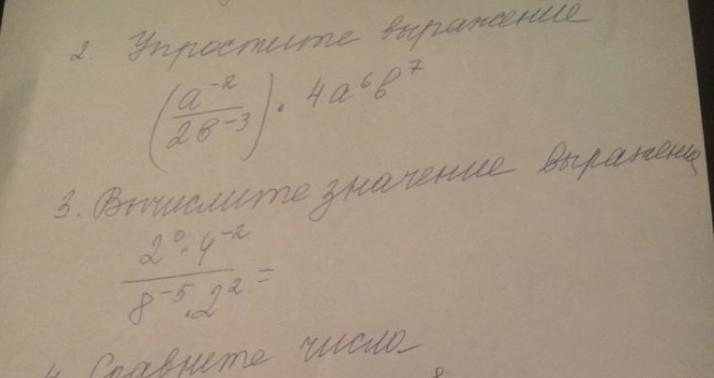 2. Упростите выражение
(a⁻²/2b⁻³) · 4a⁶b⁷
3. Вычислите значение выражения
2⁰·4⁻²/8⁻⁵·2² =
4. Сравните числа
8